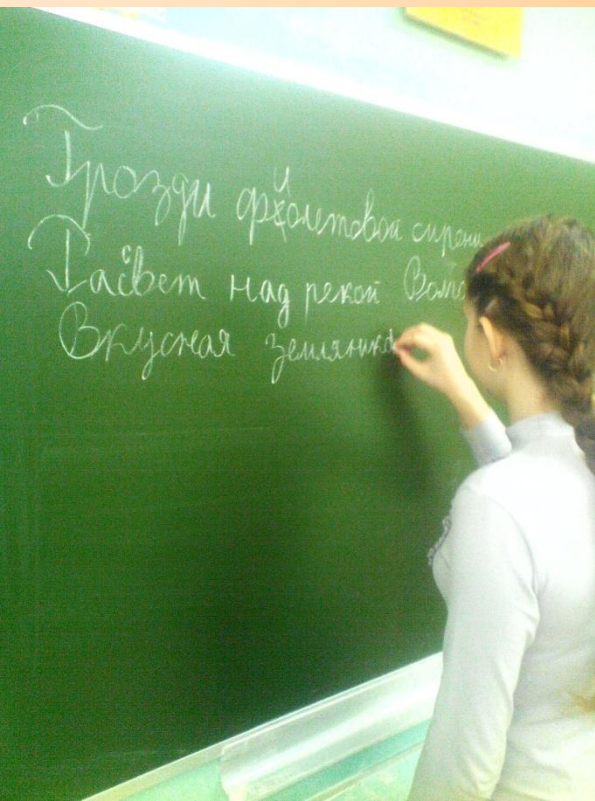 Грозди фиолетовой сирени
Рассвет над рекой
Вкусная земляника